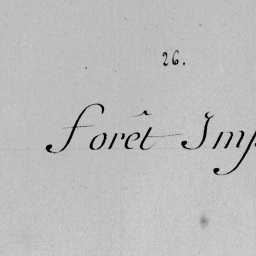 26.
forêt Imp